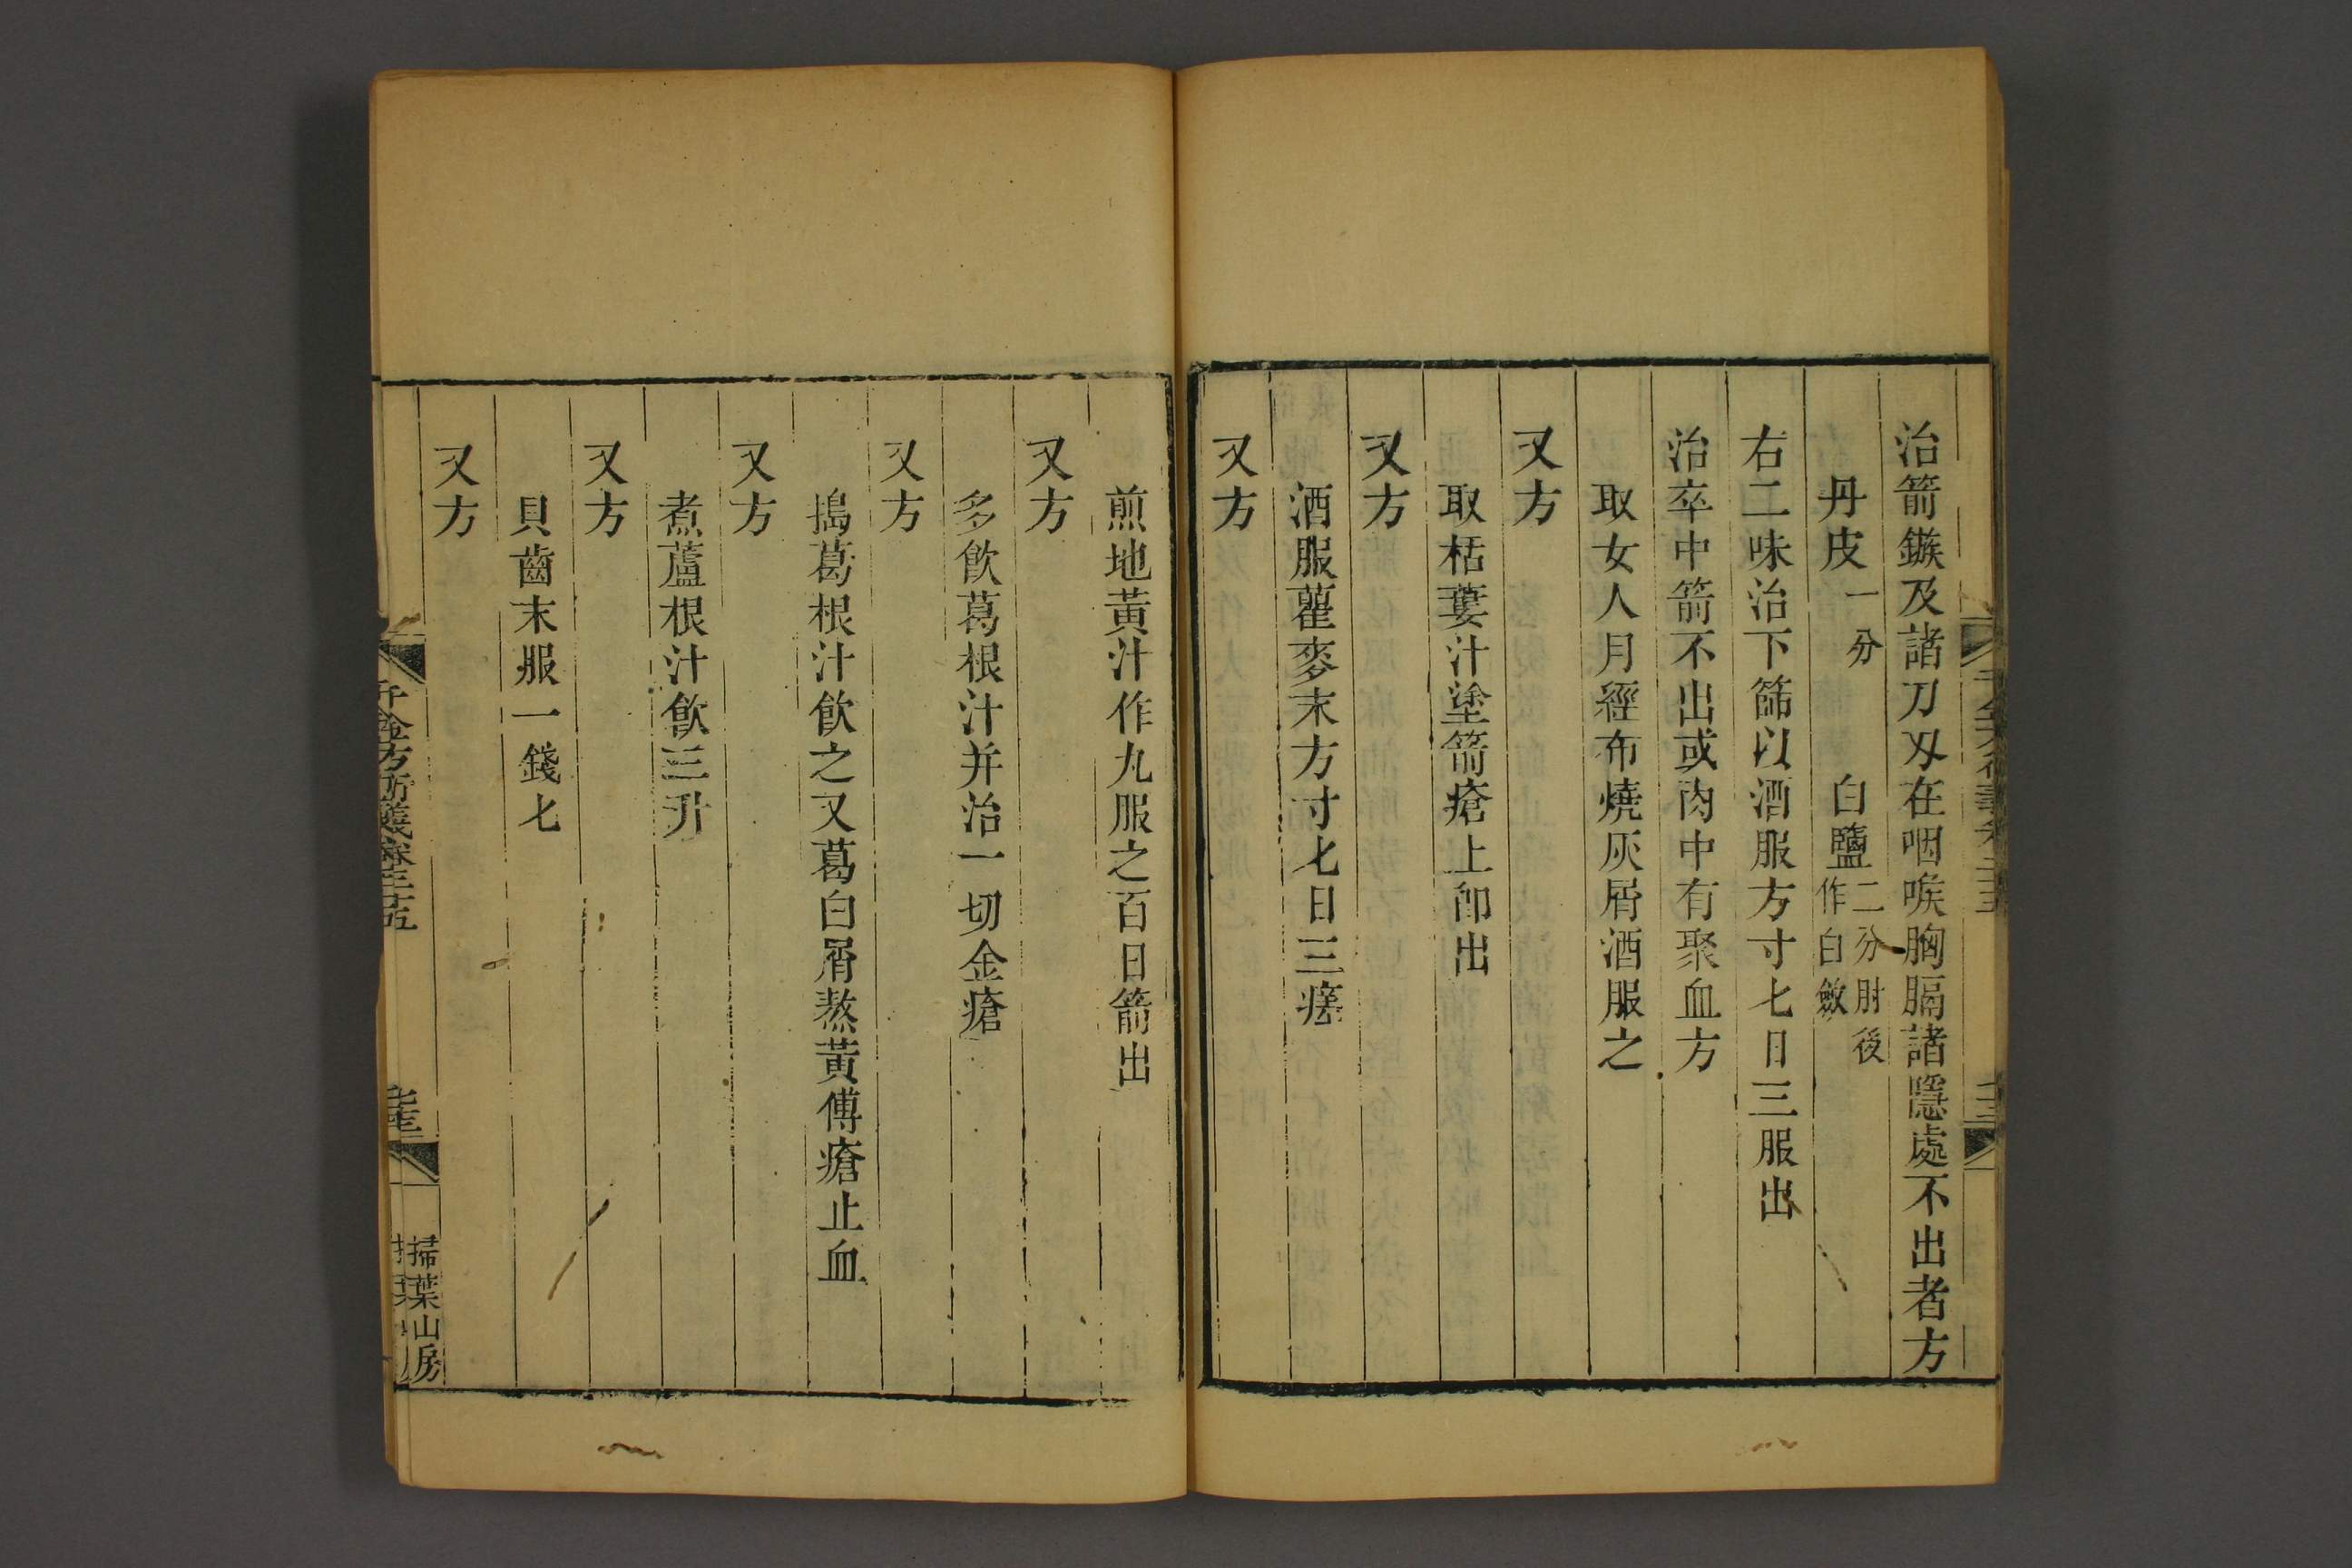 治箭鏃及諸刀刃在咽喉胸膈諸隱處不出者方
丹皮一分 白鹽二分肘後作白斂
右二味治下篩以酒服方寸匕日三服出
治卒中箭不出或肉中有聚血方
取女人月經布燒灰屑酒服之
又方
取栝蔞汁塗箭瘡上卽出
又方
酒服藋麥末方寸匕日三瘥
又方
煎地黃汁作丸服之百日箭出
又方
多飲葛根汁并治一切金瘡
又方
搗葛根汁飲之又葛白屑熬黃傅瘡止血
又方
煮蘆根汁飲三升
又方
貝齒末服一錢匕
又方
千金方衍義卷二十五
掃葉山房